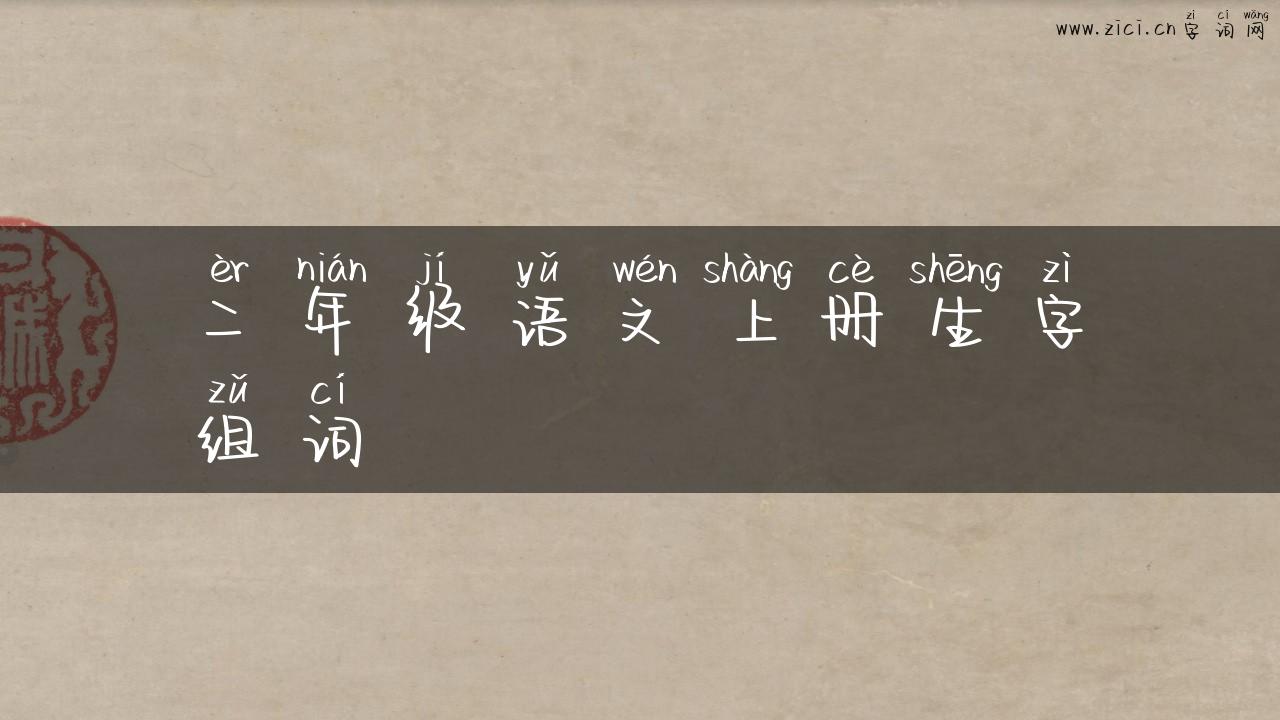 zì cí wǎng
www.zici.cn 字 词 网
èr nián jí yǔ wén shàng cè shēng zì
二 年 级 语 文 上 册 生 字
zǔ cí
组 词